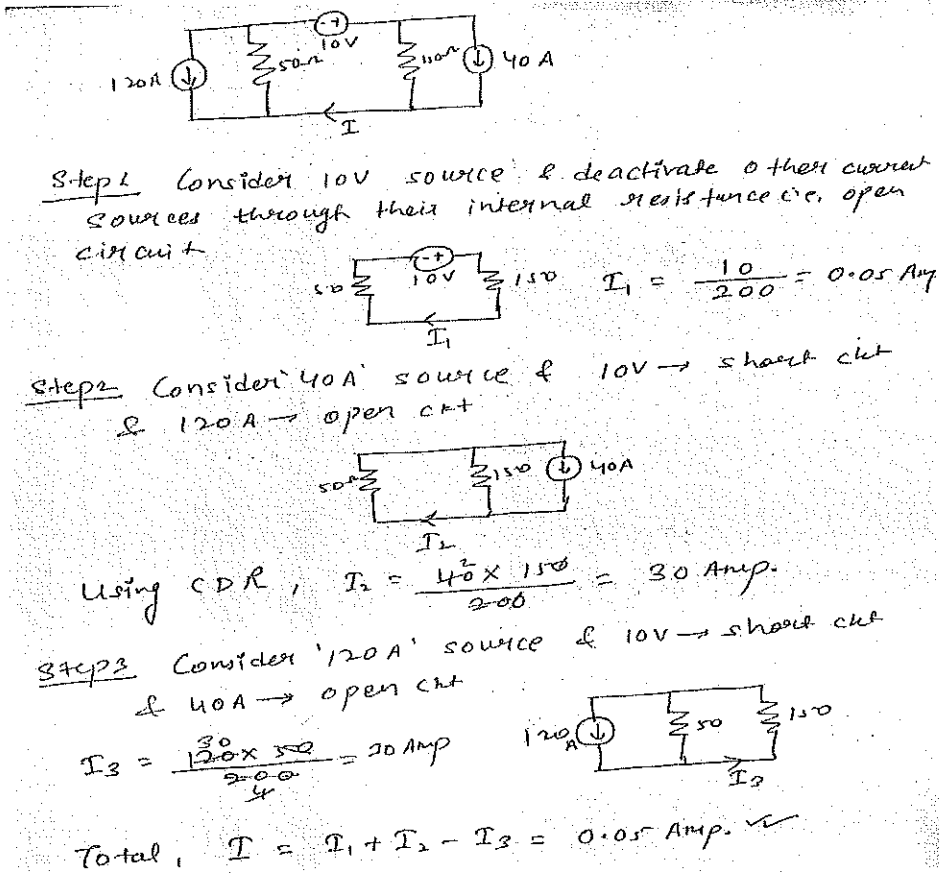 120A
50Ω
- +
10V
40 A
I
Step 1 Consider 10V source & deactivate other current
sources through their internal resistance i.e. open
circuit
50
- +
10V
150
I₁
I₁ = 10/200 = 0.05 Amp
Step 2 Consider '40A' source & 10V → short ckt
& 120A → open ckt
50Ω
150
40A
I₂
Using CDR, I₂ = 40 x 150/200 = 30 Amp.
Step 3 Consider '120A' source & 10V → short ckt
& 40A → open ckt
120A
50
150
I₃
I₃ = 120x 50/200 = 30 Amp
30
4
Total, I = I₁ + I₂ - I₃ = 0.05 Amp.